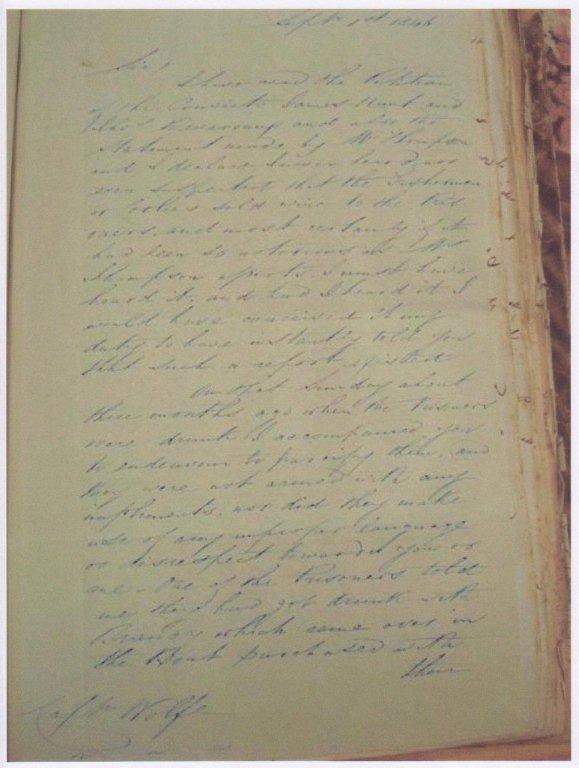 Septr 1st 1846
Sir!
I have read the Petition
of the Convicts James Hunt and
and also the
Statement made by Mr Thompson
and I declare I never heard, nor
even suspected that the Fishermen
or sold wine to the Pris
oners, and most certainly if it
had been so notorious as Mr
Thompson reports I must have
heard it, and had I heard it I
would have conceived it my
duty to have instantly told you
that such a report existed
On that Sunday about
three months ago when the Prisoners
were drunk I accompanied you
to endeavour to pacify them, and
they were not armed with any
implements, nor did they make
use of any improper language
or disrespect towards you or
me. One of the Prisoners told
me they had got drunk with
which came over in
the Boat purchased with
their
Captn Wolfe